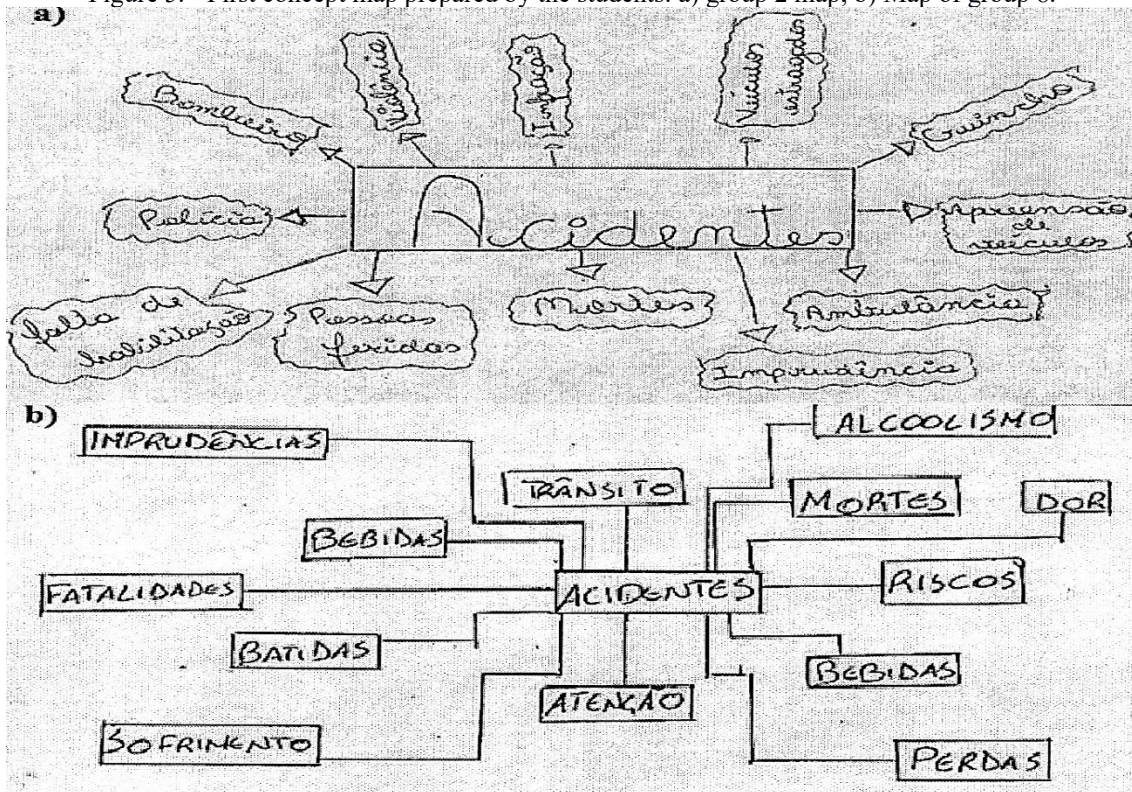 Figure 3. - First concept map prepared by the students: a) group 2 map; b) Map of group 6.
a)
Bombeiro
Violência
Infração
Veículos
estragados
Guincho
Polícia
Acidentes
Apreensão
de
veículos
falta de
habilitação
Pessoas
feridas
Mortes
Ambulância
Imprudência
b)
IMPRUDÊNCIAS
ALCOOLISMO
TRÂNSITO
MORTES
DOR
BEBIDAS
FATALIDADES
ACIDENTES
RISCOS
BATIDAS
BEBIDAS
ATENÇÃO
SOFRIMENTO
PERDAS